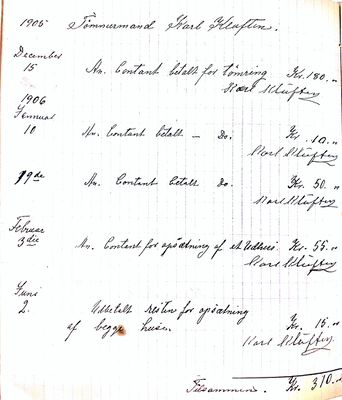 1905 Tömmermand Karl Kluften.
December
15 An. Contant betalt for tömring Kr. 180. "
Karl Kluften
1906
Januar
10 An. Contant betalt — Do. Kr. 10. "
Karl Kluften
19de An. Contant betalt Do. Kr. 50. "
Karl Kluften
Februar
3die An. Contant for opsætning af et Udhus. Kr. 55. "
Karl Kluften
Juni
2. Udbetalt resten for opsætning
af begge huse. Kr. 15. "
Karl Kluften
Tilsammen. Kr. 310. "